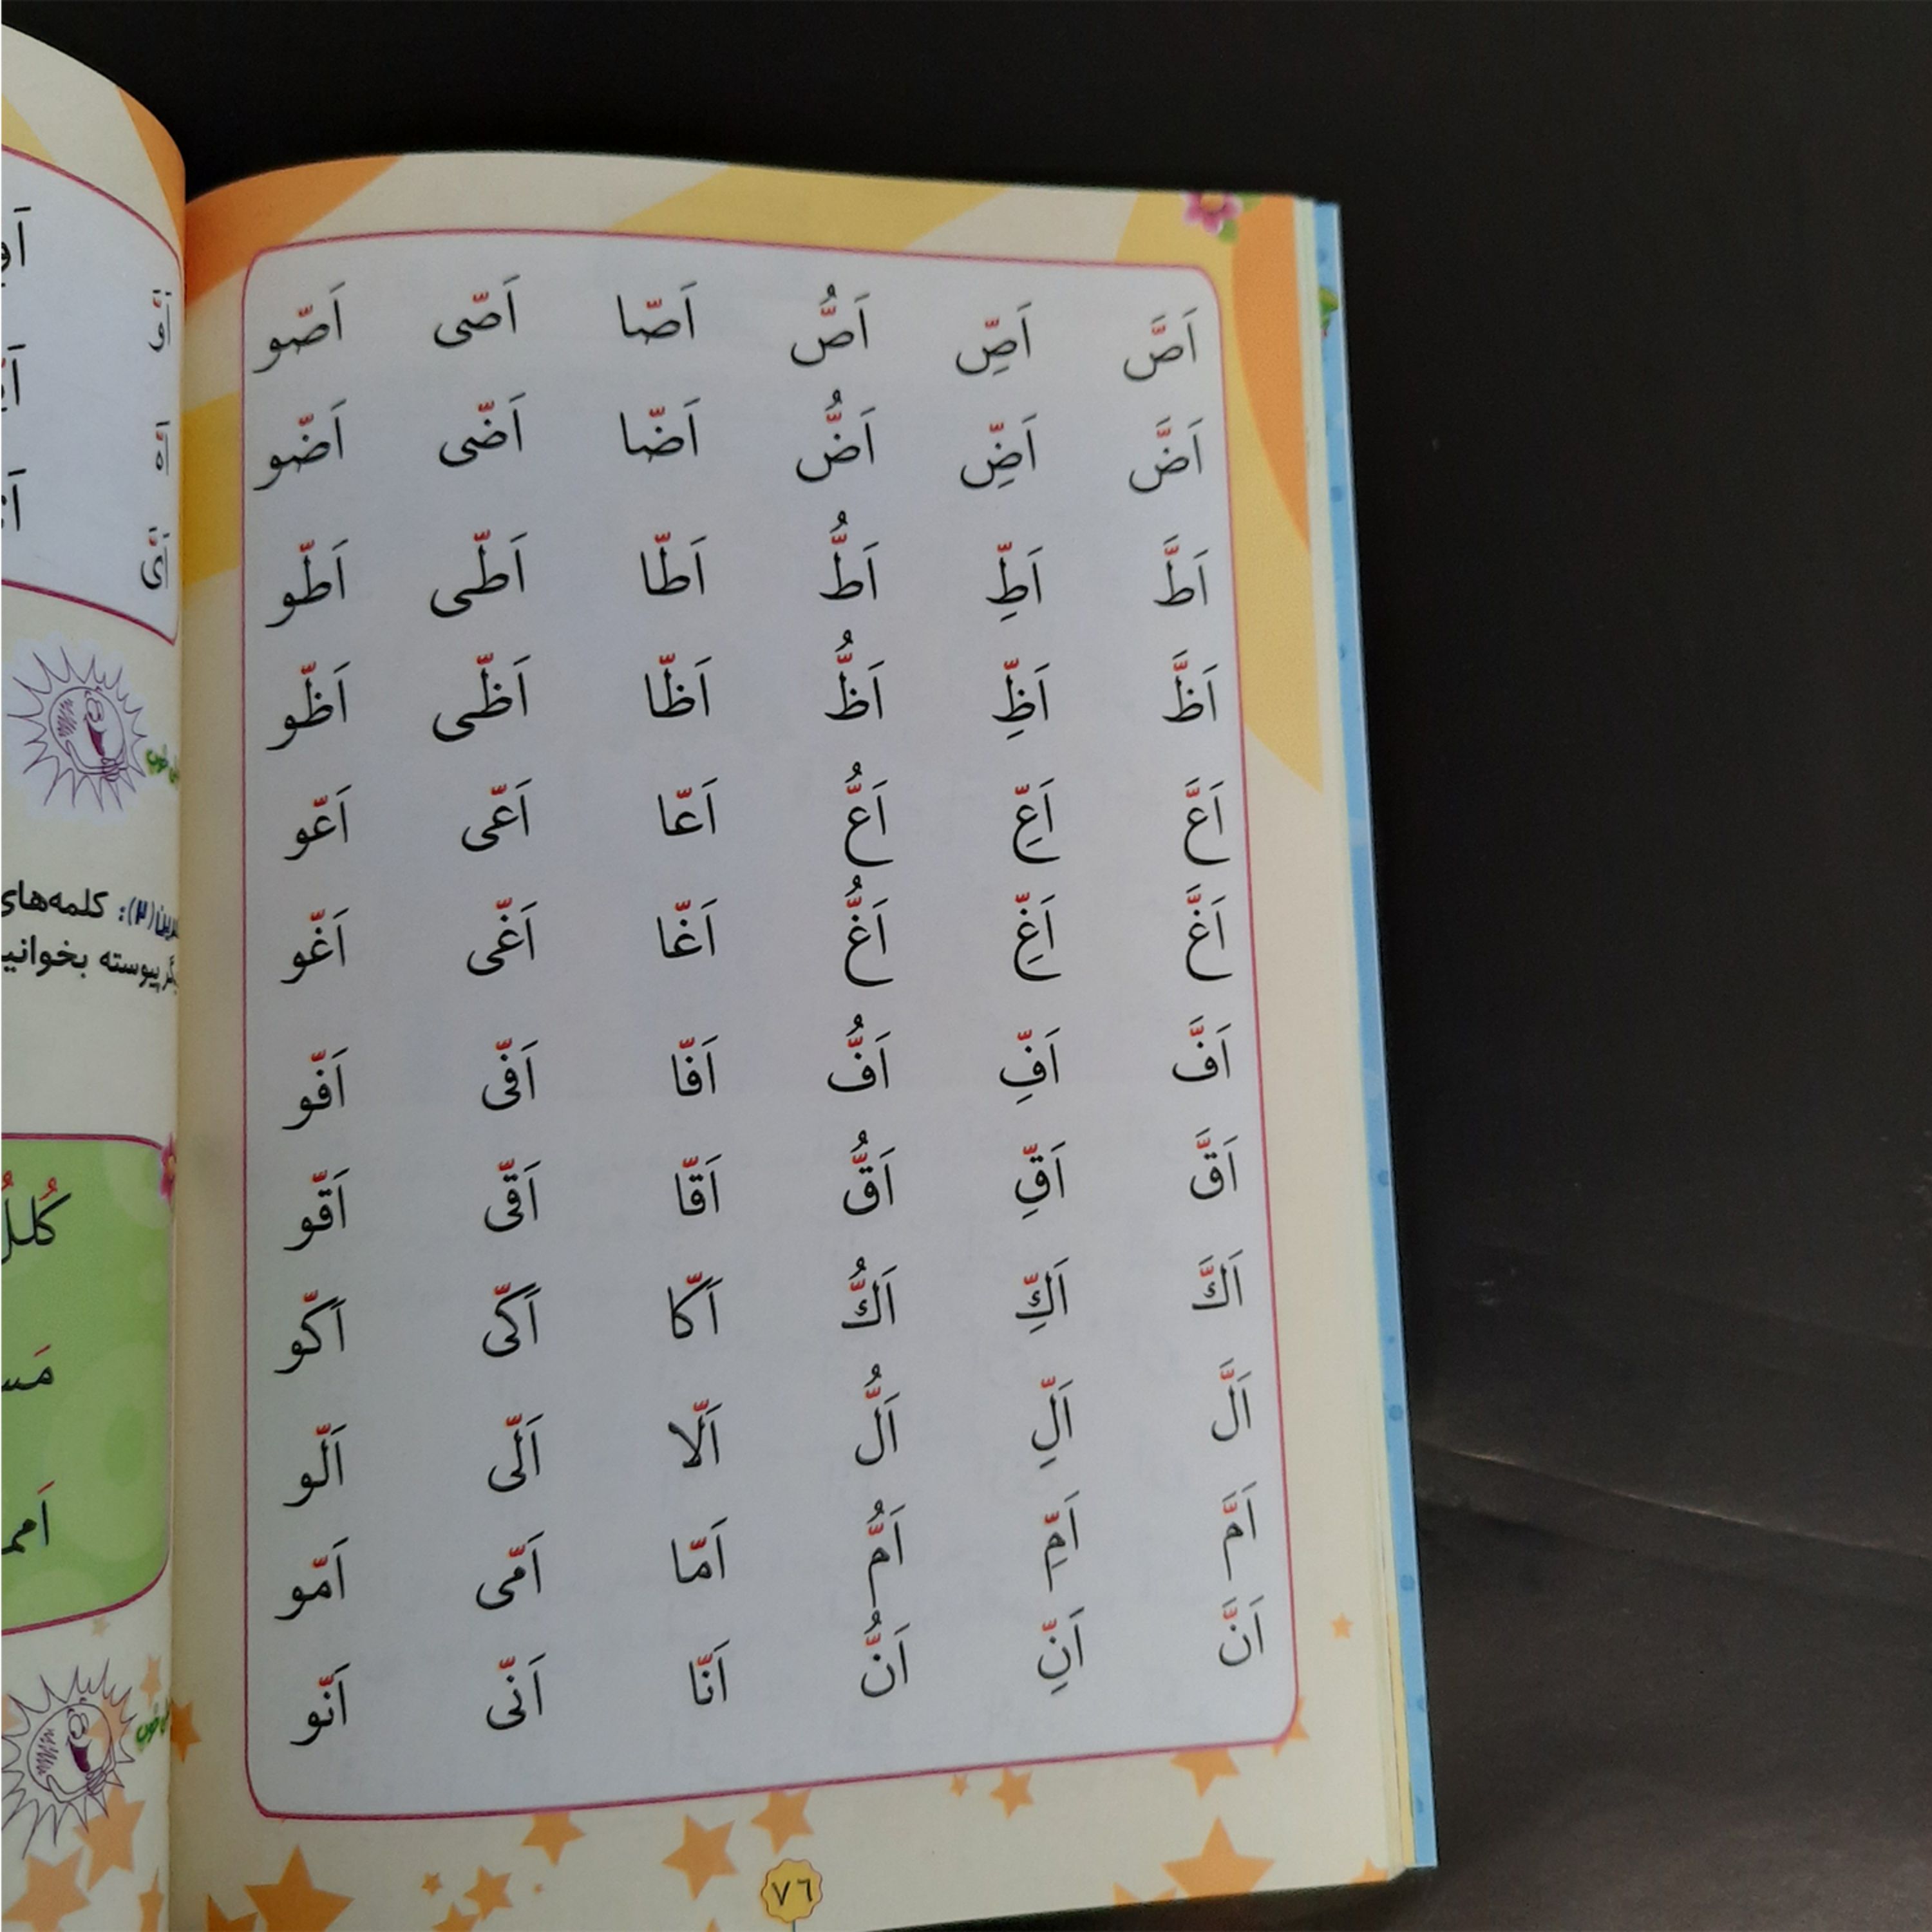 اَصَّ اَصِّ اَصُّ اَصّا اَصّی اَصّو
اَضَّ اَضِّ اَضُّ اَضّا اَضّی اَضّو
اَطَّ اَطِّ اَطُّ اَطّا اَطّی اَطّو
اَظَّ اَظِّ اَظُّ اَظّا اَظّی اَظّو
اَعَّ اَعِّ اَعُّ اَعّا اَعّی اَعّو
اَغَّ اَغِّ اَغُّ اَغّا اَغّی اَغّو
اَفَّ اَفِّ اَفُّ اَفّا اَفّی اَفّو
اَقَّ اَقِّ اَقُّ اَقّا اَقّی اَقّو
اَكَّ اَكِّ اَكُّ اَكّا اَكّی اَكّو
اَلَّ اَلِّ اَلُّ اَلّا اَلّی اَلّو
اَمَّ اَمِّ اَمُّ اَمّا اَمّی اَمّو
اَنَّ اَنِّ اَنُّ اَنّا اَنّی اَنّو
٧٦
اَوَّ
اَهَّ
اَیَّ
(٢): کلمه‌های
پیوسته